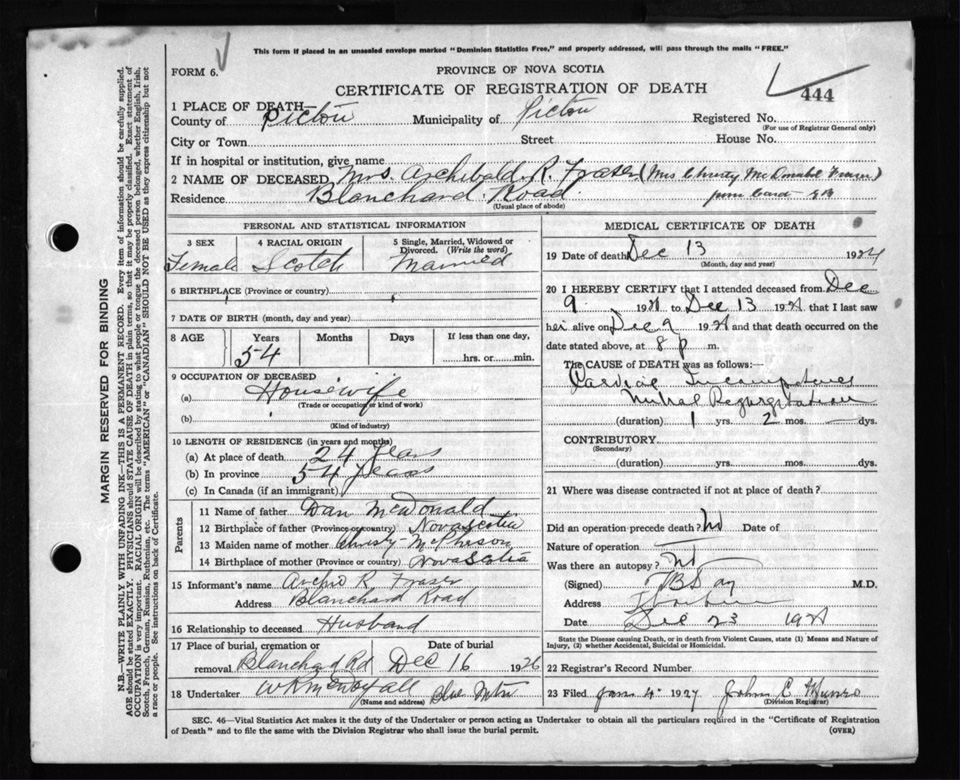 This form if placed in an unsealed envelope marked "Dominion Statistics Free," and properly addressed, will pass through the mails "FREE."
FORM 6.
PROVINCE OF NOVA SCOTIA
CERTIFICATE OF REGISTRATION OF DEATH
444
1 PLACE OF DEATH—
County of Pictou Municipality of Pictou Registered No.
(For use of Registrar General only)
City or Town Street House No.
If in hospital or institution, give name
2 NAME OF DECEASED Mrs. Archibald R. Fraser (Mrs Christy McDonald Fraser)
Residence Blanchard Road
(Usual place of abode)
PERSONAL AND STATISTICAL INFORMATION
3 SEX 4 RACIAL ORIGIN 5 Single, Married, Widowed or Divorced. (Write the word)
Female Scotch Married
6 BIRTHPLACE (Province or country)
7 DATE OF BIRTH (month, day and year)
8 AGE Years Months Days If less than one day,
54 hrs. or min.
9 OCCUPATION OF DECEASED
(a) Housewife
(Trade or occupation or kind of work)
(b)
(Kind of industry)
10 LENGTH OF RESIDENCE (in years and months)
(a) At place of death 24 years
(b) In province 54 years
(c) In Canada (if an immigrant)
Parents
11 Name of father Dan McDonald
12 Birthplace of father (Province or country) Nova Scotia
13 Maiden name of mother Christy McPherson
14 Birthplace of mother (Province or country) Nova Scotia
15 Informant's name Archie R Fraser
Address Blanchard Road
16 Relationship to deceased Husband
17 Place of burial, cremation or removal Blanchard Rd Date of burial Dec 16 1926
18 Undertaker Blue Mtn
(Name and address)
MEDICAL CERTIFICATE OF DEATH
19 Date of death Dec 13 192
(Month, day and year)
20 I HEREBY CERTIFY that I attended deceased from Dec
9 192 to Dec 13 192 that I last saw
her alive on Dec 9 192 and that death occurred on the
date stated above, at 8 p m.
The CAUSE OF DEATH was as follows:
Cardiac Incompetence
Mitral Regurgitation
(duration) 1 yrs. 2 mos. — dys.
CONTRIBUTORY
(Secondary)
(duration) yrs. mos. dys.
21 Where was disease contracted if not at place of death?
Did an operation precede death? No Date of
Nature of operation
Was there an autopsy? No
(Signed) M.D.
Address
Date Dec 23 192
State the Disease causing Death, or in death from Violent Causes, state (1) Means and Nature of Injury, (2) whether Accidental, Suicidal or Homicidal.
22 Registrar's Record Number
23 Filed Jan 4 1927 John C Munro
(Division Registrar)
SEC. 46—Vital Statistics Act makes it the duty of the Undertaker or person acting as Undertaker to obtain all the particulars required in the "Certificate of Registration
of Death" and to file the same with the Division Registrar who shall issue the burial permit. (OVER)
MARGIN RESERVED FOR BINDING
N.B.—WRITE PLAINLY WITH UNFADING INK—THIS IS A PERMANENT RECORD. Every item of information should be carefully supplied.
AGE should be stated EXACTLY. PHYSICIANS should STATE CAUSE OF DEATH in plain terms, so that it may be properly classified. Exact statement of
OCCUPATION is very important. RACIAL ORIGIN will be described by stating to what people or tongue the deceased person belonged, whether English, Irish,
Scotch, French, German, Russian, Ruthenian, etc. The terms "AMERICAN" or "CANADIAN" SHOULD NOT BE USED as they express citizenship but not
a race or people. See instructions on back of Certificate.